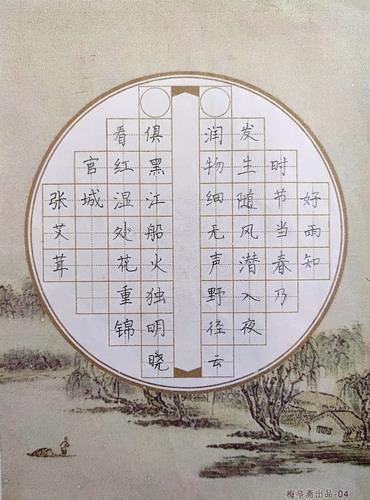 好雨知
时节当春乃
发生随风潜入夜
润物细无声野径云
俱黑江船火独明晓
看红湿处花重锦
官城
张艾茸
梅亭斋出品-04